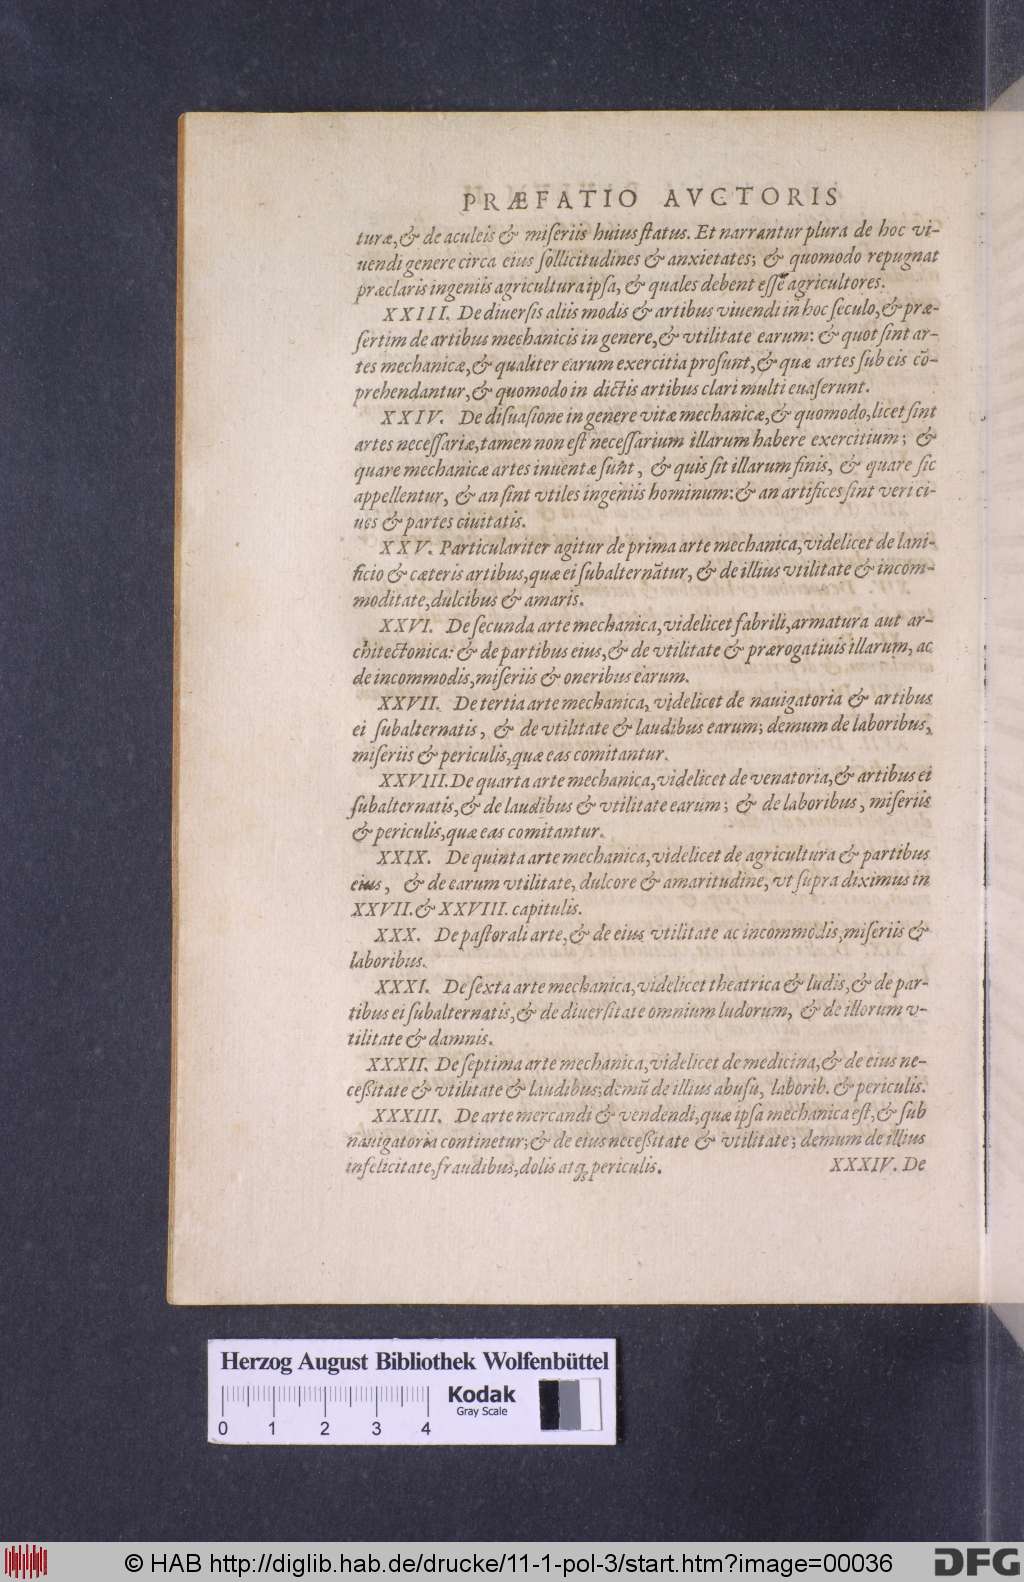 PRÆFATIO AVCTORIS
turæ, & de aculeis & miseriis huius status. Et narrantur plura de hoc vi-
uendi genere circa eius sollicitudines & anxietates; & quomodo repugnat
præclaris ingeniis agricultura ipsa, & quales debent esse agricultores.
XXIII. De diuersis aliis modis & artibus viuendi in hoc seculo, & præ-
sertim de artibus mechanicis in genere, & vtilitate earum: & quot sint ar-
tes mechanicæ, & qualiter earum exercitia prosunt, & quæ artes sub eis cō-
prehendantur, & quomodo in dictis artibus clari multi euaserunt.
XXIV. De disuasione in genere vitæ mechanicæ, & quomodo, licet sint
artes necessariæ, tamen non est necessarium illarum habere exercitium; &
quare mechanicæ artes inuentæ sunt, & quis sit illarum finis, & quare sic
appellentur, & an sint vtiles ingeniis hominum: & an artifices sint veri ci-
ues & partes ciuitatis.
XXV. Particulariter agitur de prima arte mechanica, videlicet de lani-
ficio & cæteris artibus, quæ ei subalternātur, & de illius vtilitate & incom-
moditate, dulcibus & amaris.
XXVI. De secunda arte mechanica, videlicet fabrili, armatura aut ar-
chitectonica: & de partibus eius, & de vtilitate & prærogatiuis illarum, ac
de incommodis, miseriis & oneribus earum.
XXVII. De tertia arte mechanica, videlicet de nauigatoria & artibus
ei subalternatis, & de vtilitate & laudibus earum; demum de laboribus,
miseriis & periculis, quæ eas comitantur.
XXVIII. De quarta arte mechanica, videlicet de venatoria, & artibus ei
subalternatis, & de laudibus & vtilitate earum; & de laboribus, miseriis
& periculis, quæ eas comitantur.
XXIX. De quinta arte mechanica, videlicet de agricultura & partibus
eius, & de earum vtilitate, dulcore & amaritudine, vt supra diximus in
XXVII. & XXVIII. capitulis.
XXX. De pastorali arte, & de eius vtilitate ac incommodis, miseriis &
laboribus.
XXXI. De sexta arte mechanica, videlicet theatrica & ludis, & de par-
tibus ei subalternatis, & de diuersitate omnium ludorum, & de illorum v-
tilitate & damnis.
XXXII. De septima arte mechanica, videlicet de medicina, & de eius ne-
cessitate & vtilitate & laudibus; demū de illius abusu, laborib. & periculis.
XXXIII. De arte mercandi & vendendi, quæ ipsa mechanica est, & sub
nauigatoria continetur; & de eius necessitate & vtilitate; demum de illius
infelicitate, fraudibus, dolis atq; periculis.
XXXIV. De
Herzog August Bibliothek Wolfenbüttel
Kodak
Gray Scale
0 1 2 3 4
© HAB http://diglib.hab.de/drucke/11-1-pol-3/start.htm?image=00036
DFG